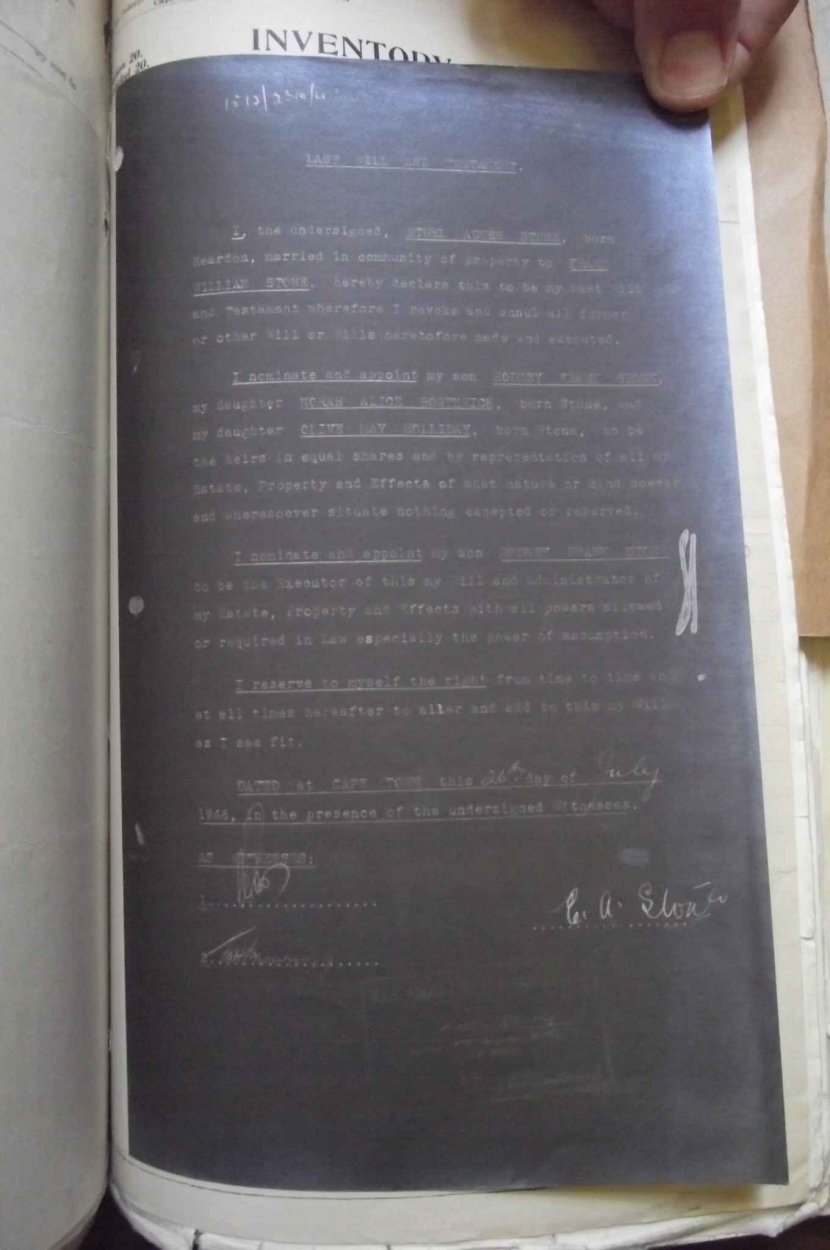 INVENTORY
LAST WILL AND TESTAMENT.
I, the undersigned, ETHEL AGNES STONE, born
Reardon, married in community of property to FRANK
WILLIAM STONE, hereby declare this to be my Last Will
and Testament wherefore I revoke and annul all former
or other Will or Wills heretofore made and executed.
I nominate and appoint my son RODNEY FRANK STONE,
my daughter NORAH ALICE BORTHWICK, born Stone, and
my daughter OLIVE MAY HOLLIDAY, born Stone, to be
the heirs in equal shares and by representation of all my
Estate, Property and Effects of what nature or kind soever
and wheresoever situate nothing excepted or reserved.
I nominate and appoint my son RODNEY FRANK STONE
to be the Executor of this my Will and Administrator of
my Estate, Property and Effects with all powers allowed
or required in Law especially the power of assumption.
I reserve to myself the right from time to time and
at all times hereafter to alter and add to this my Will
as I see fit.
DATED at CAPE TOWN this 26th day of July
1946, in the presence of the undersigned Witnesses.
AS WITNESSES:
1.
E. A. Stone
2.